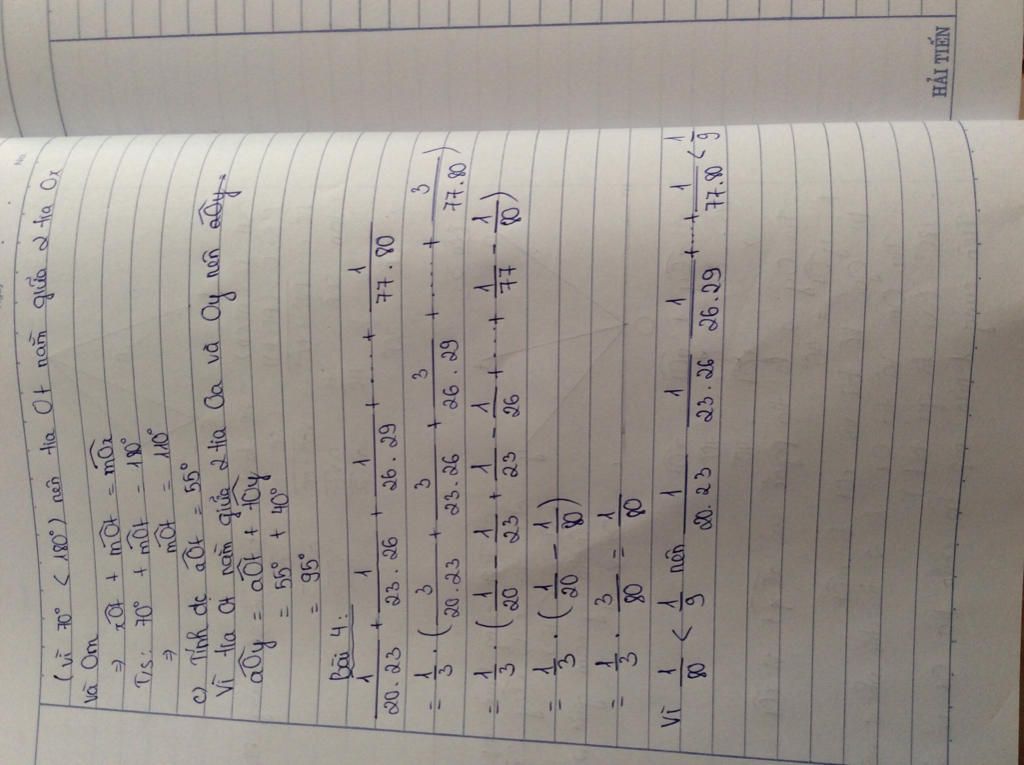 No
(Vì 70° < 180°) nên tia Ot nằm giữa 2 tia Ox
và Om
⇒ xOt + mOt = mOx
T/s: 70° + mOt = 180°
⇒ mOt = 110°
c) Tính đc aOt = 55°
Vì tia Ot nằm giữa 2 tia Oa và Oy nên aOy =
aOy = aOt + tOy
= 55° + 40°
= 95°
Bài 4:
1/20.23 + 1/23.26 + 1/26.29 + ..... + 1/77.80
= 1/3 . (3/20.23 + 3/23.26 + 3/26.29 + ..... + 3/77.80)
= 1/3 . (1/20 - 1/23 + 1/23 - 1/26 + ..... + 1/77 - 1/80)
= 1/3 . (1/20 - 1/80)
= 1/3 . 3/80 = 1/80
Vì 1/80 < 1/9 nên 1/20.23 1/23.26 1/26.29 + ... + 1/77.80 < 1/9
HẢI TIẾN